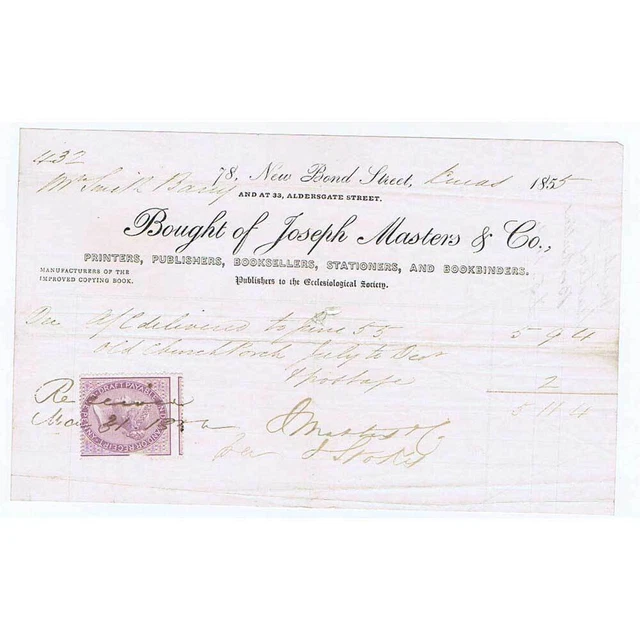 432
78, New Bond Street, Xmas 1855
Mr Smith Barry
AND AT 33, ALDERSGATE STREET.
Bought of Joseph Masters & Co.,
PRINTERS, PUBLISHERS, BOOKSELLERS, STATIONERS, AND BOOKBINDERS.
MANUFACTURERS OF THE
IMPROVED COPYING BOOK.
Publishers to the Ecclesiological Society.
Dec A/C delivered to June 55 5 9 4
Old Church Porch July to Decr
& postage 2
5 11 4
Received
Mar 31 185
J Masters & Co
J Stokes
DRAFT PAYABLE RECEIPT